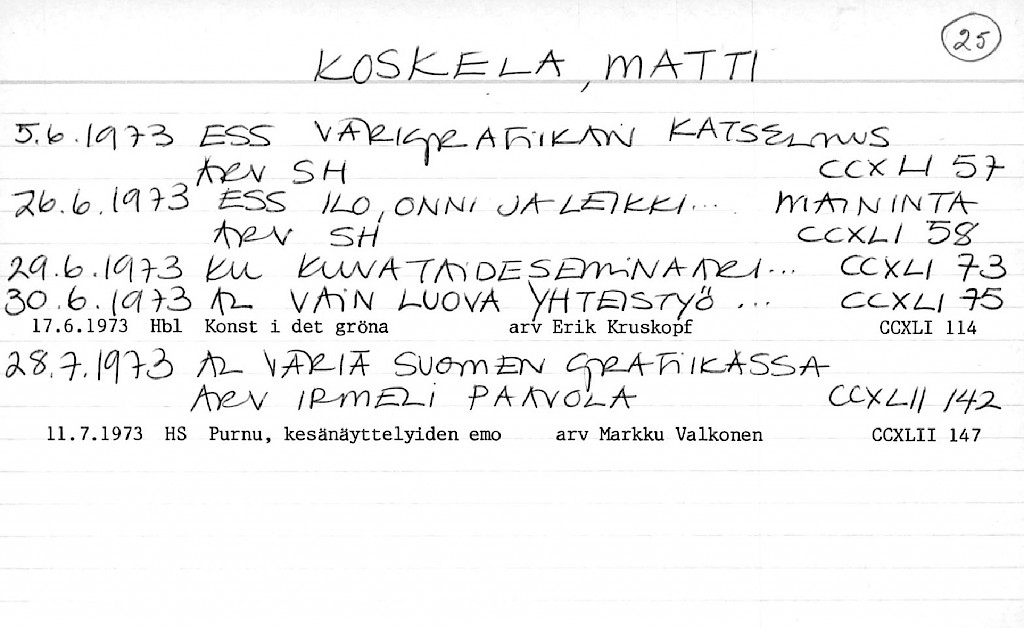 25
KOSKELA, MATTI
5.6.1973 ESS VÄRIGRAFIIKAN KATSELMUS
ARV SH CCXLI 57
26.6.1973 ESS ILO, ONNI JA LEIKKI... MAININTA
ARV SH CCXLI 58
29.6.1973 KU KUVATAIDESEMINAARI... CCXLI 73
30.6.1973 AL VAIN LUOVA YHTEISTYÖ ... CCXLI 75
17.6.1973 Hbl Konst i det gröna arv Erik Kruskopf CCXLI 114
28.7.1973 AL VÄRIÄ SUOMEN GRAFIIKASSA
ARV IRMELI PAAVOLA CCXLII 142
11.7.1973 HS Purnu, kesänäyttelyiden emo arv Markku Valkonen CCXLII 147